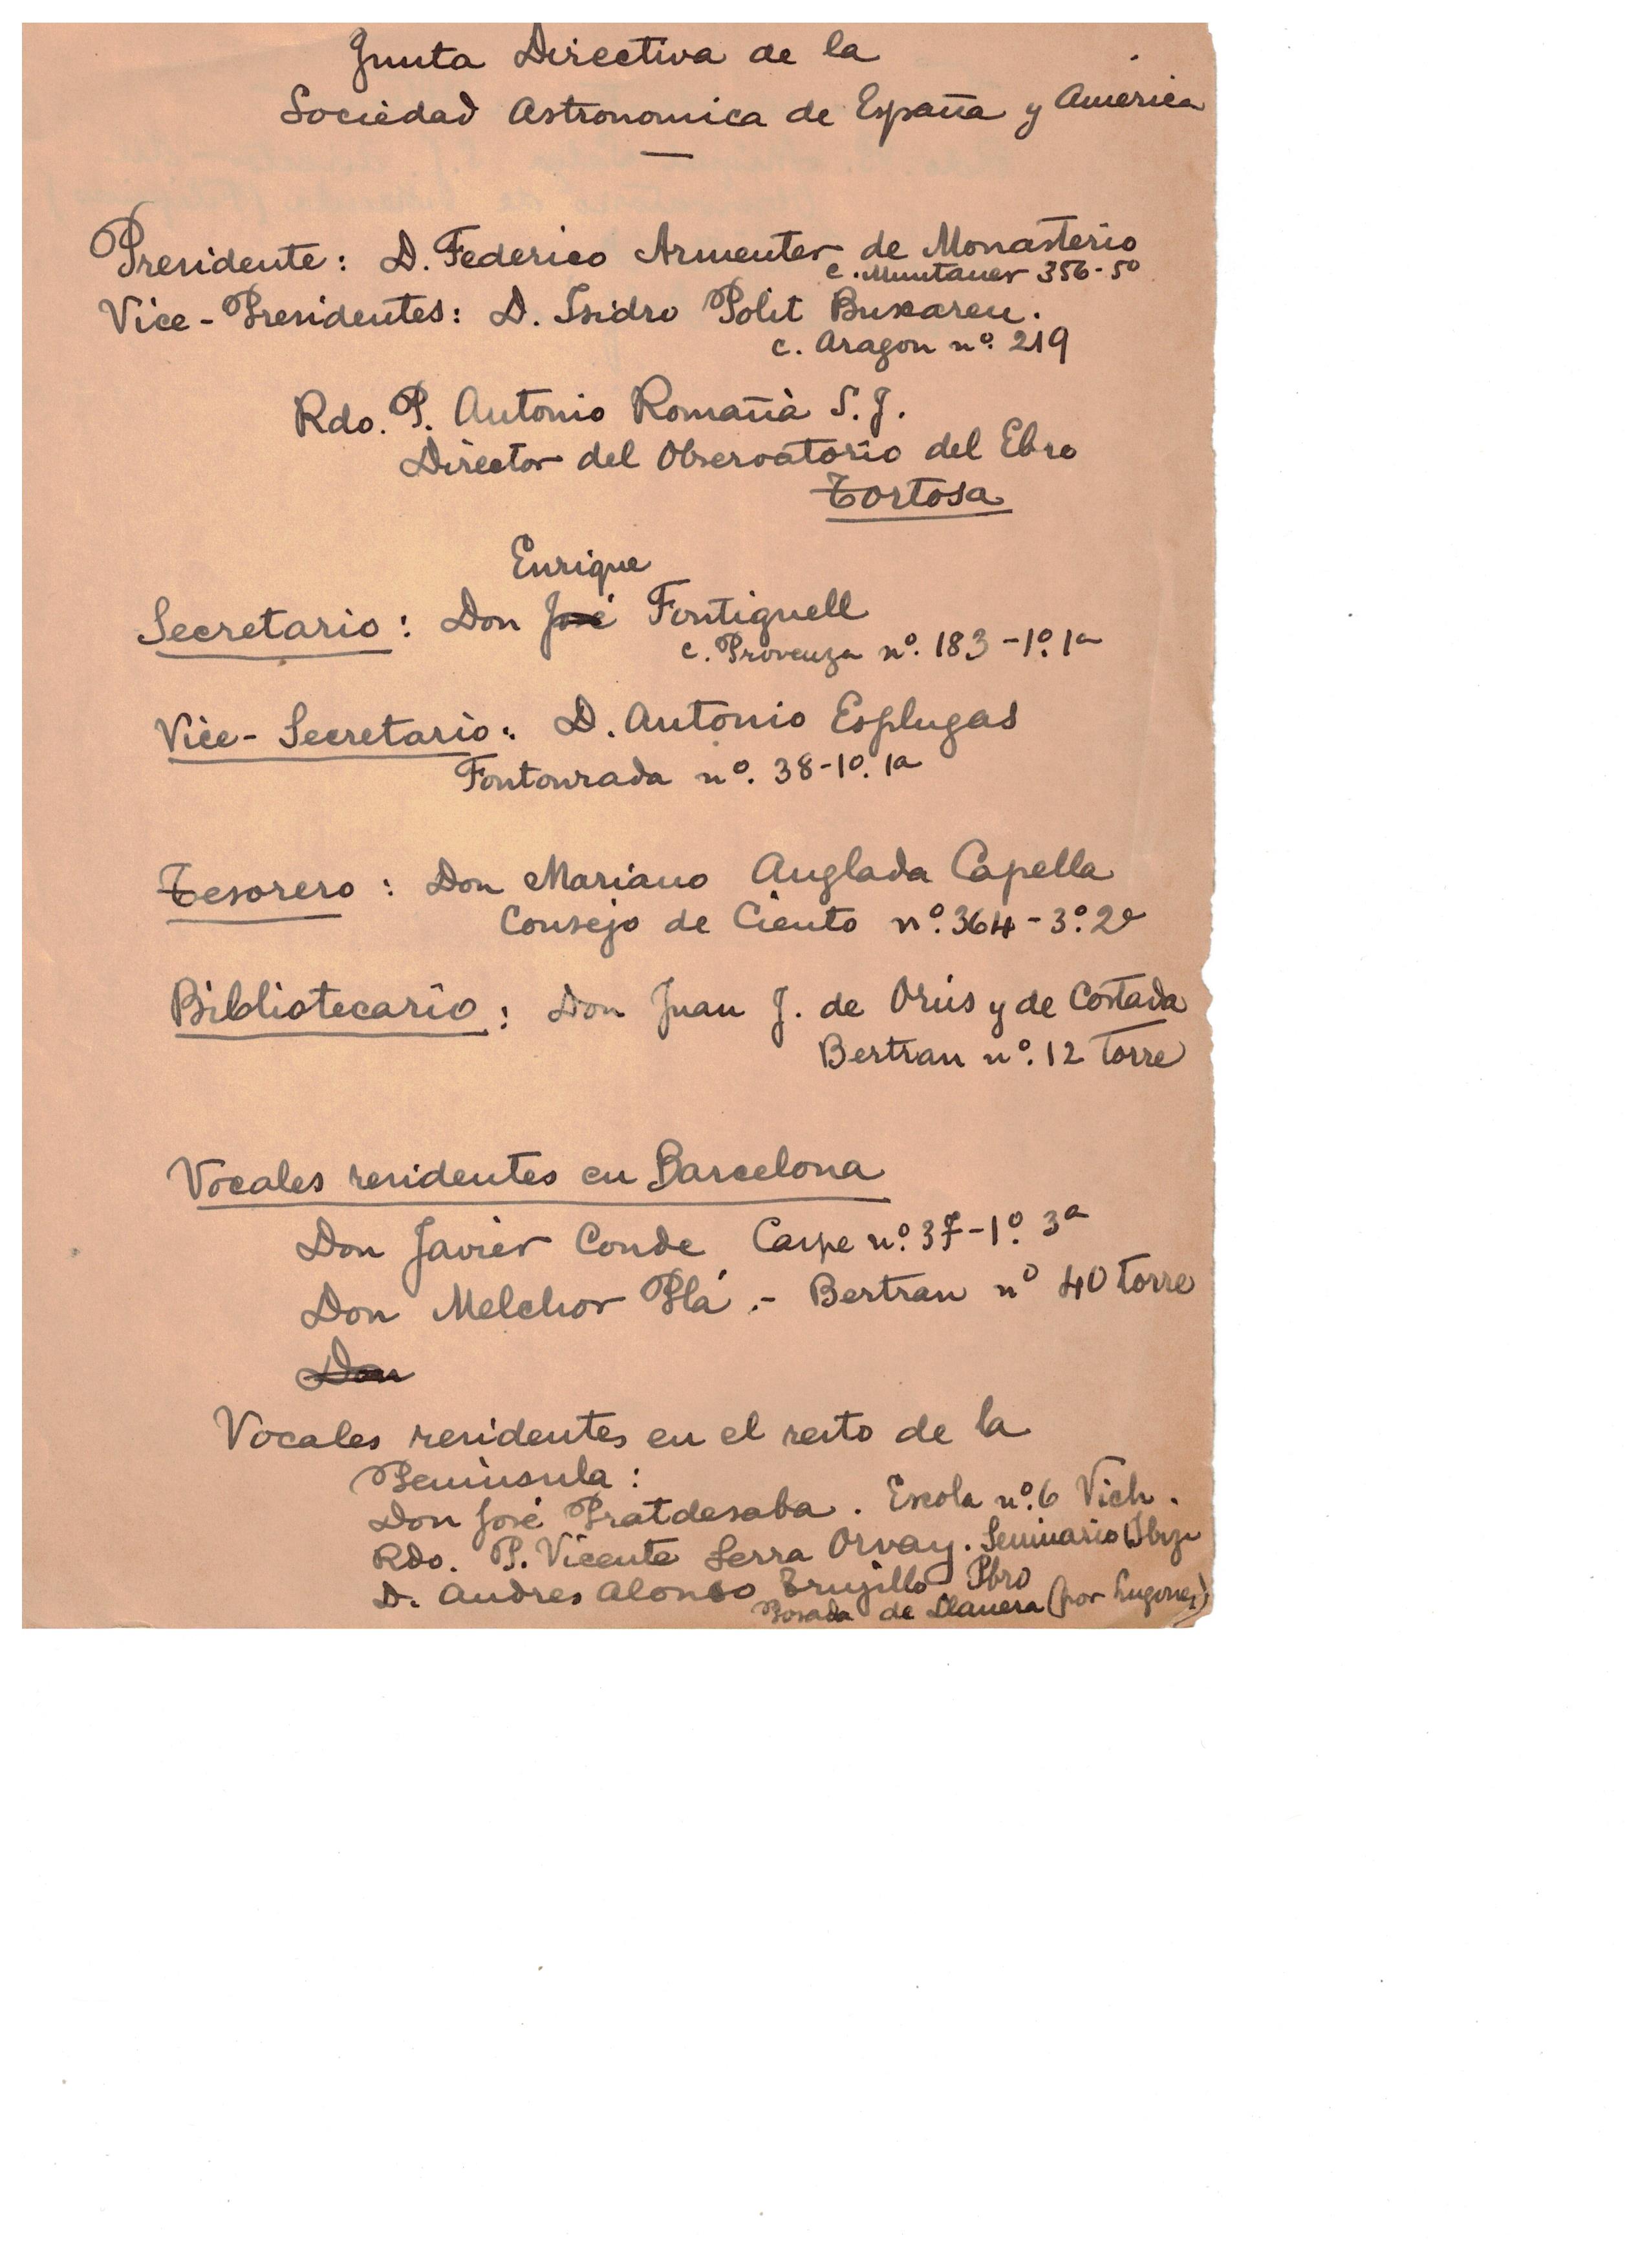 Junta Directiva de la
Sociedad Astronomica de España y América
Presidente: D. Federico Armenter de Monasterio
c. Muntaner 356-5º
Vice-Presidentes: D. Isidro Polit Buxareu.
c. Aragon nº. 219
Rdo. P. Antonio Romañà S. J.
Director del Observatorio del Ebro
Tortosa
Enrique
Secretario: Don José Fontiguell
c. Provenza nº. 183-1º. 1ª
Vice-Secretario: D. Antonio Esplugas
nº. 38-1º. 1ª
Tesorero: Don Mariano Anglada Capella
Consejo de Ciento nº. 364-3º. 2ª
Bibliotecario: Don Juan J. de Orús y de Costada
Bertran nº. 12 torre
Vocales residentes en Barcelona
Don Javier Conde Caspe nº. 37-1º. 3ª
Don Melchor Plá .- Bertran nº 40 torre
Don
Vocales residentes en el resto de la
Peninsula:
Don José Pratdesaba. Escola nº. 6 Vich.
Rdo. P. Vicente Serra Orvay. Seminario
D. Andres Alonso Trujillo Pbro
Posada de Llanera (por Lugones)